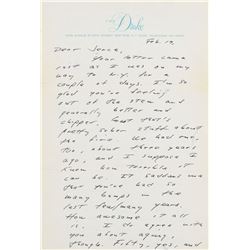 The Drake
Feb. 19,
Dear Jerra,
Your letter came
just as I was on my
way to N.Y. for a
couple of days. I'm so
glad you're feeling
out of the stew and
generally better and
chipper. God that's
pretty sober stuff about
the fire. We had one,
too, about three years
ago, and I suppose I
know how terrible it
can be. It saddens me
that you've had so
many bumps in the
last few/many years.
How awesome it all
is. I do agree with
you about aging,
though. Fifty, yes, and